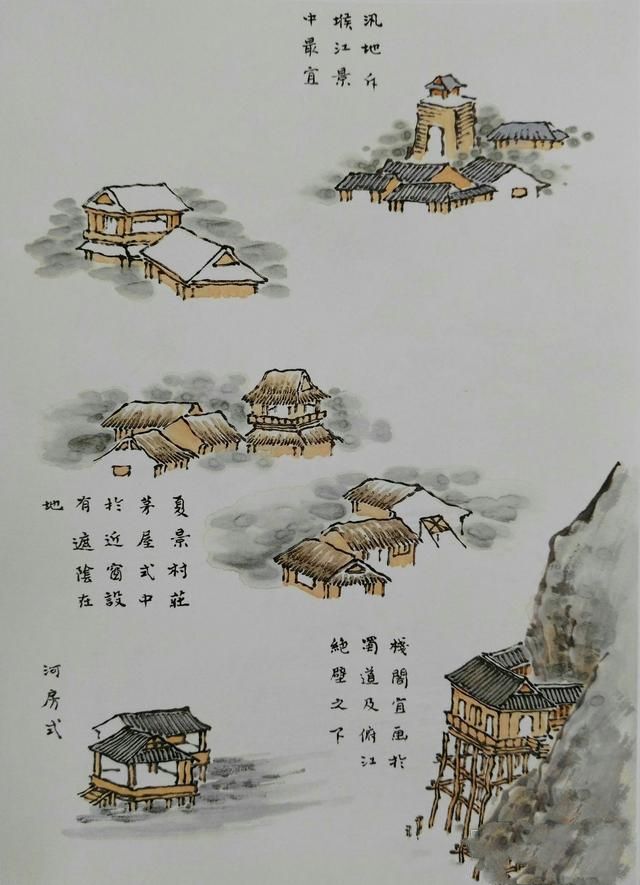 汛地斥
堠江景
中最宜
夏景村莊
茅屋式中
於近窗設
有遮陰在
地
棧閣宜画於
蜀道及俯江
絕壁之下
河房式